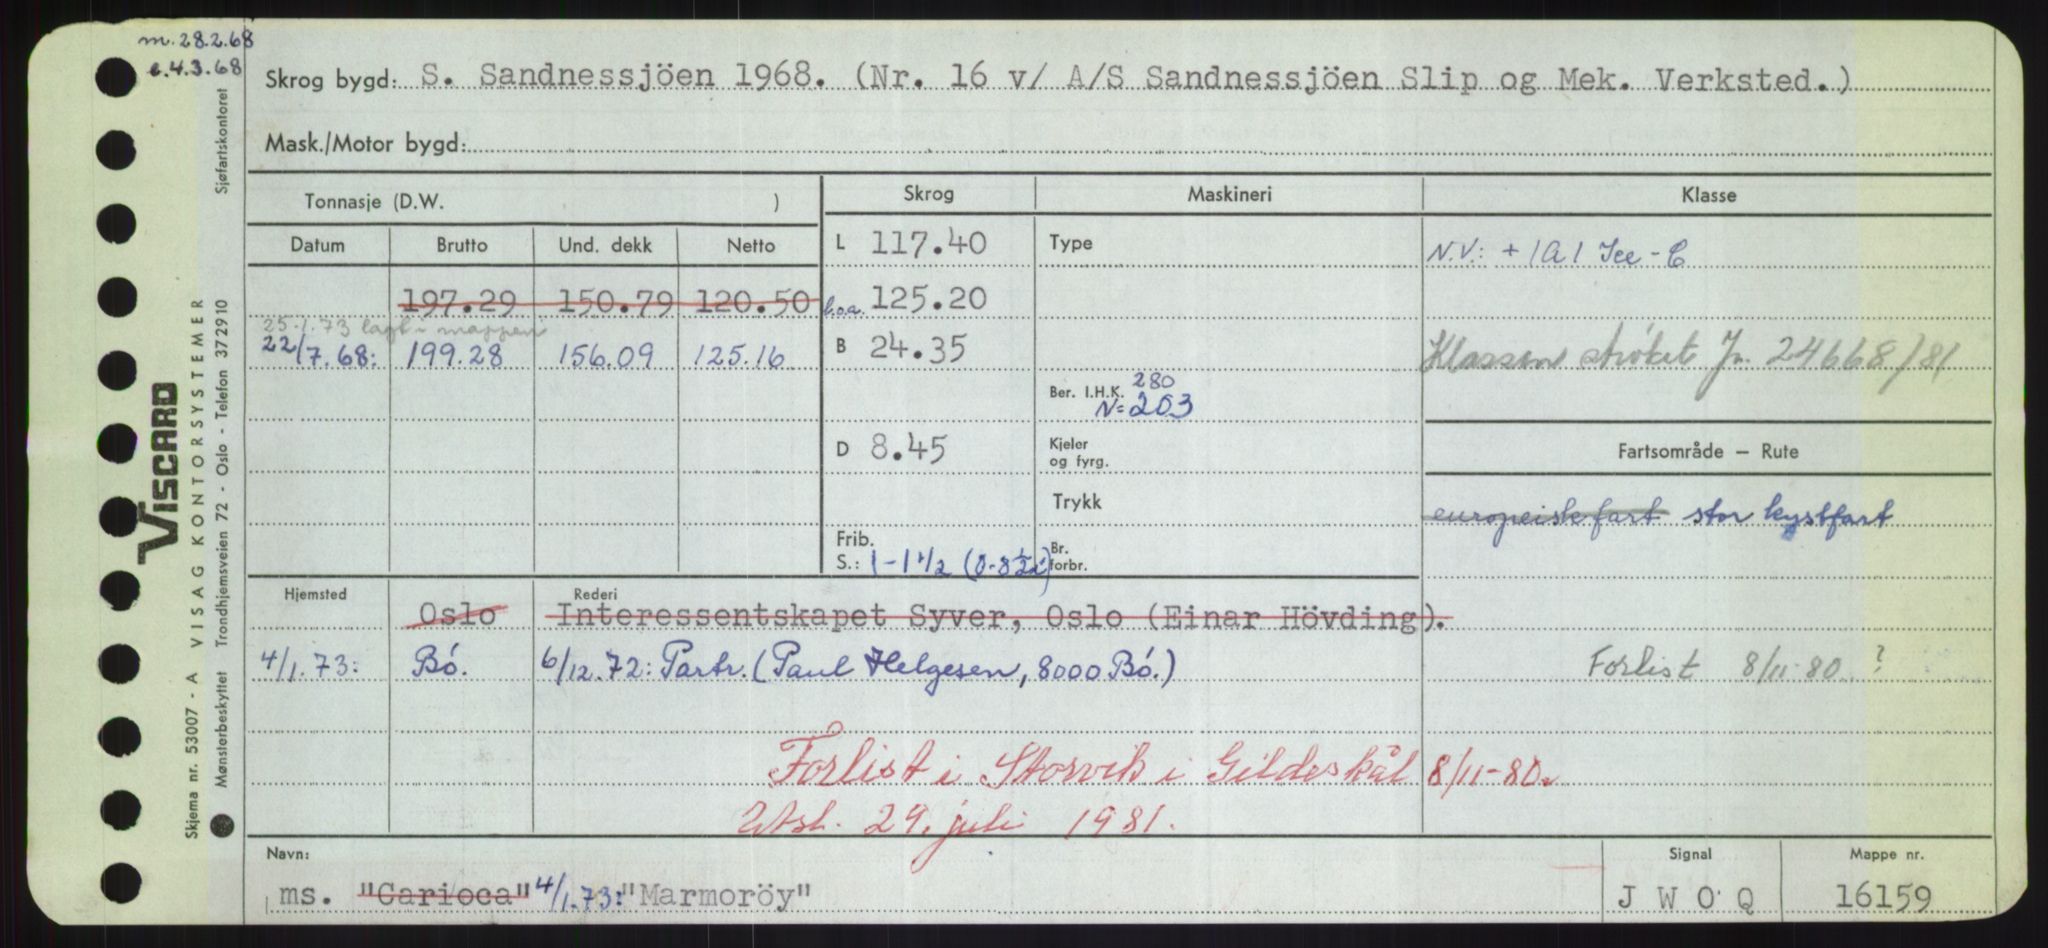 m. 28.2.68
e. 4.3.68
Skrog bygd: S. Sandnessjöen 1968. (Nr. 16 v/ A/S Sandnessjöen Slip og Mek. Verksted.)
Mask./Motor bygd:
Tonnasje (D.W. )
Skrog Maskineri Klasse
Datum Brutto Und. dekk Netto
L 117.40 Type N.V.: + 1A1 Ice-C
197.29 150.79 120.50 l.o.a. 125.20
25-1.73 lagt i mappen
22/7.68: 199.28 156.09 125.16 B 24.35 Klassen strøket Jn. 24668/81
Ber. I.H.K. 280
N=203
D 8.45 Kjeler og fyrg. Fartsområde — Rute
Trykk europeisk fart stor kystfart
Frib. S.: 1-1 1/2 (0-8 1/2) Br. forbr.
Hjemsted Rederi
Oslo Interessentskapet Syver, Oslo (Einar Hövding).
4/1.73: Bö. 6/12.72: Partr. (Paul Helgesen, 8000 Bö.) Forlist 8/11-80 ?
Forlist i Storvik i Gildeskål 8/11-80.
Utsl. 29. juli 1981.
Navn: Signal Mappe nr.
ms. "Carioca" 4/1.73: "Marmoröy" J W O Q 16159
VISCARD
Skjema nr. 53007 - A VISAG KONTORSYSTEMER
Mønsterbeskyttet Trondhjemsveien 72 - Oslo - Telefon 372910 Sjøfartskontoret